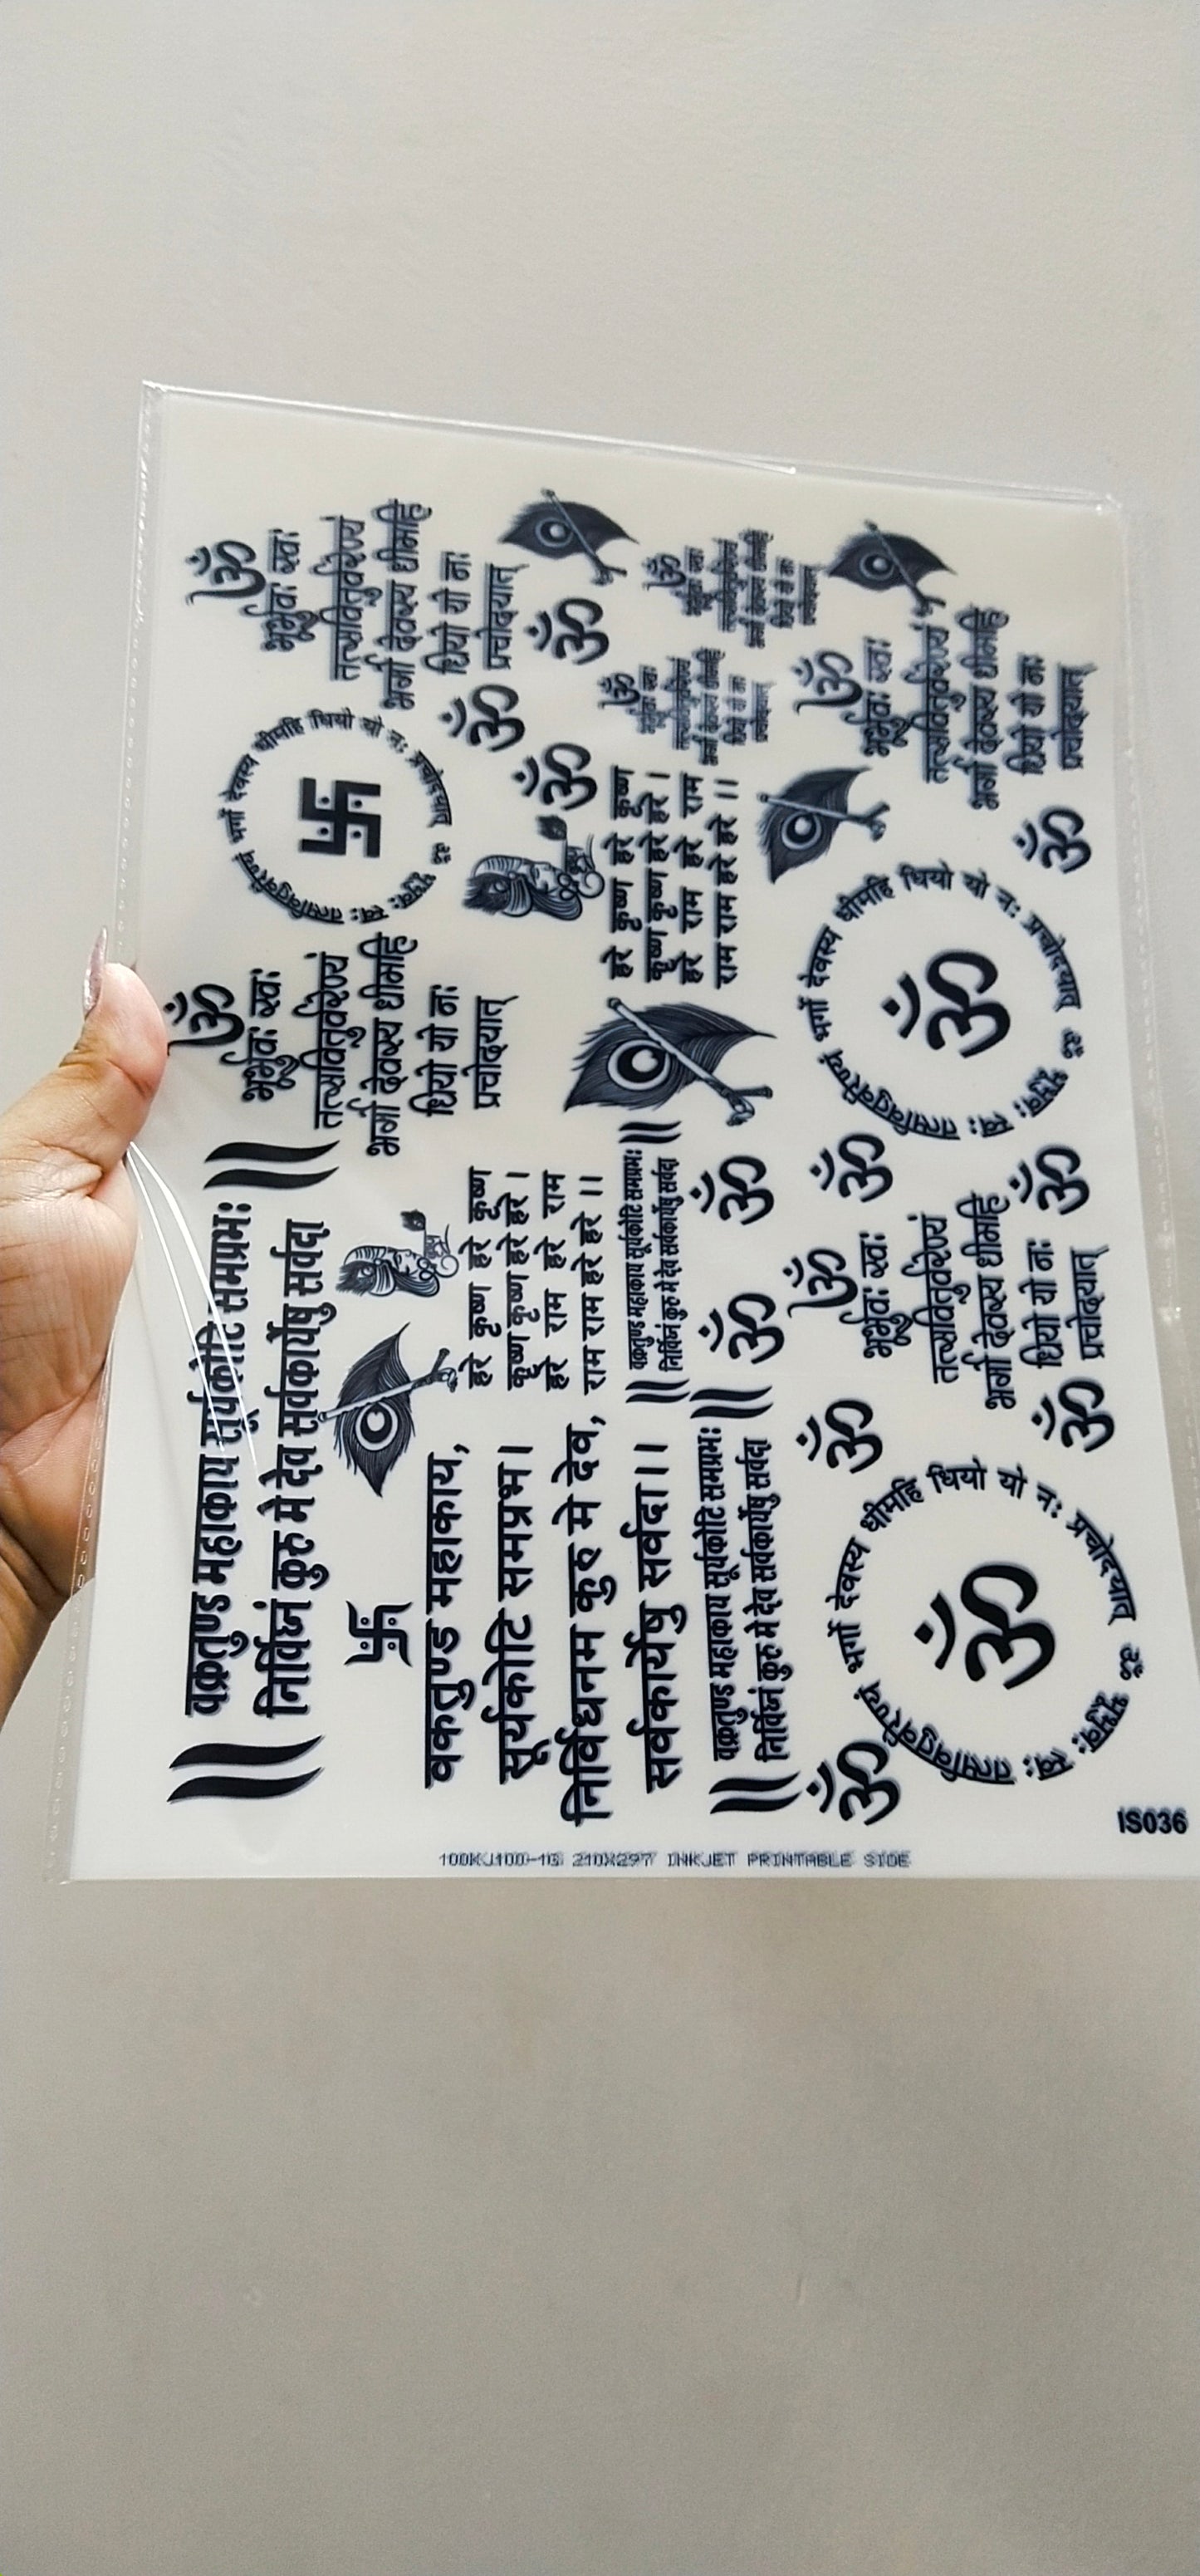 || वक्रतुण्ड महाकाय सूर्यकोटि समप्रभः ||
निर्विघ्नं कुरु मे देव सर्वकार्येषु सर्वदा
ॐ
भूर्भुवः स्वः
तत्सवितुर्वरेण्यं
भर्गो देवस्य धीमहि
धियो यो नः
प्रचोदयात्
ॐ भूर्भुवः स्वः तत्सवितुर्वरेण्यं भर्गो देवस्य धीमहि धियो यो नः प्रचोदयात्
卐
ॐ
भूर्भुवः स्वः
तत्सवितुर्वरेण्यं
भर्गो देवस्य धीमहि
धियो यो नः
प्रचोदयात्
卐
वकतुण्ड महाकाय,
सूर्यकोटि समप्रभ।
निर्विघनम कुरु मे देव,
सर्वकार्येषु सर्वदा।।
हरे कृष्ण हरे कृष्ण
कृष्ण कृष्ण हरे हरे।
हरे राम हरे राम
राम राम हरे हरे।।
ॐ
ॐ
ॐ
हरे कृष्ण हरे कृष्ण
कृष्ण कृष्ण हरे हरे।
हरे राम हरे राम
राम राम हरे हरे।।
|| वक्रतुण्ड महाकाय सूर्यकोटि समप्रभः ||
निर्विघ्नं कुरु मे देव सर्वकार्येषु सर्वदा
ॐ
भूर्भुवः स्वः
तत्सवितुर्वरेण्यं
भर्गो देवस्य धीमहि
धियो यो नः
प्रचोदयात्
ॐ
भूर्भुवः स्वः
तत्सवितुर्वरेण्यं
भर्गो देवस्य धीमहि
धियो यो नः
प्रचोदयात्
|| वक्रतुण्ड महाकाय सूर्यकोटि समप्रभः ||
निर्विघ्नं कुरु मे देव सर्वकार्येषु सर्वदा
ॐ
ॐ
ॐ
ॐ
ॐ
ॐ भूर्भुवः स्वः तत्सवितुर्वरेण्यं भर्गो देवस्य धीमहि धियो यो नः प्रचोदयात्
ॐ
ॐ
भूर्भुवः स्वः
तत्सवितुर्वरेण्यं
भर्गो देवस्य धीमहि
धियो यो नः
प्रचोदयात्
ॐ
ॐ
ॐ भूर्भुवः स्वः तत्सवितुर्वरेण्यं भर्गो देवस्य धीमहि धियो यो नः प्रचोदयात्
ॐ
ॐ
ॐ
भूर्भुवः स्वः
तत्सवितुर्वरेण्यं
भर्गो देवस्य धीमहि
धियो यो नः
प्रचोदयात्
100KJ100-1G 210X297 INKJET PRINTABLE SIDE
IS036